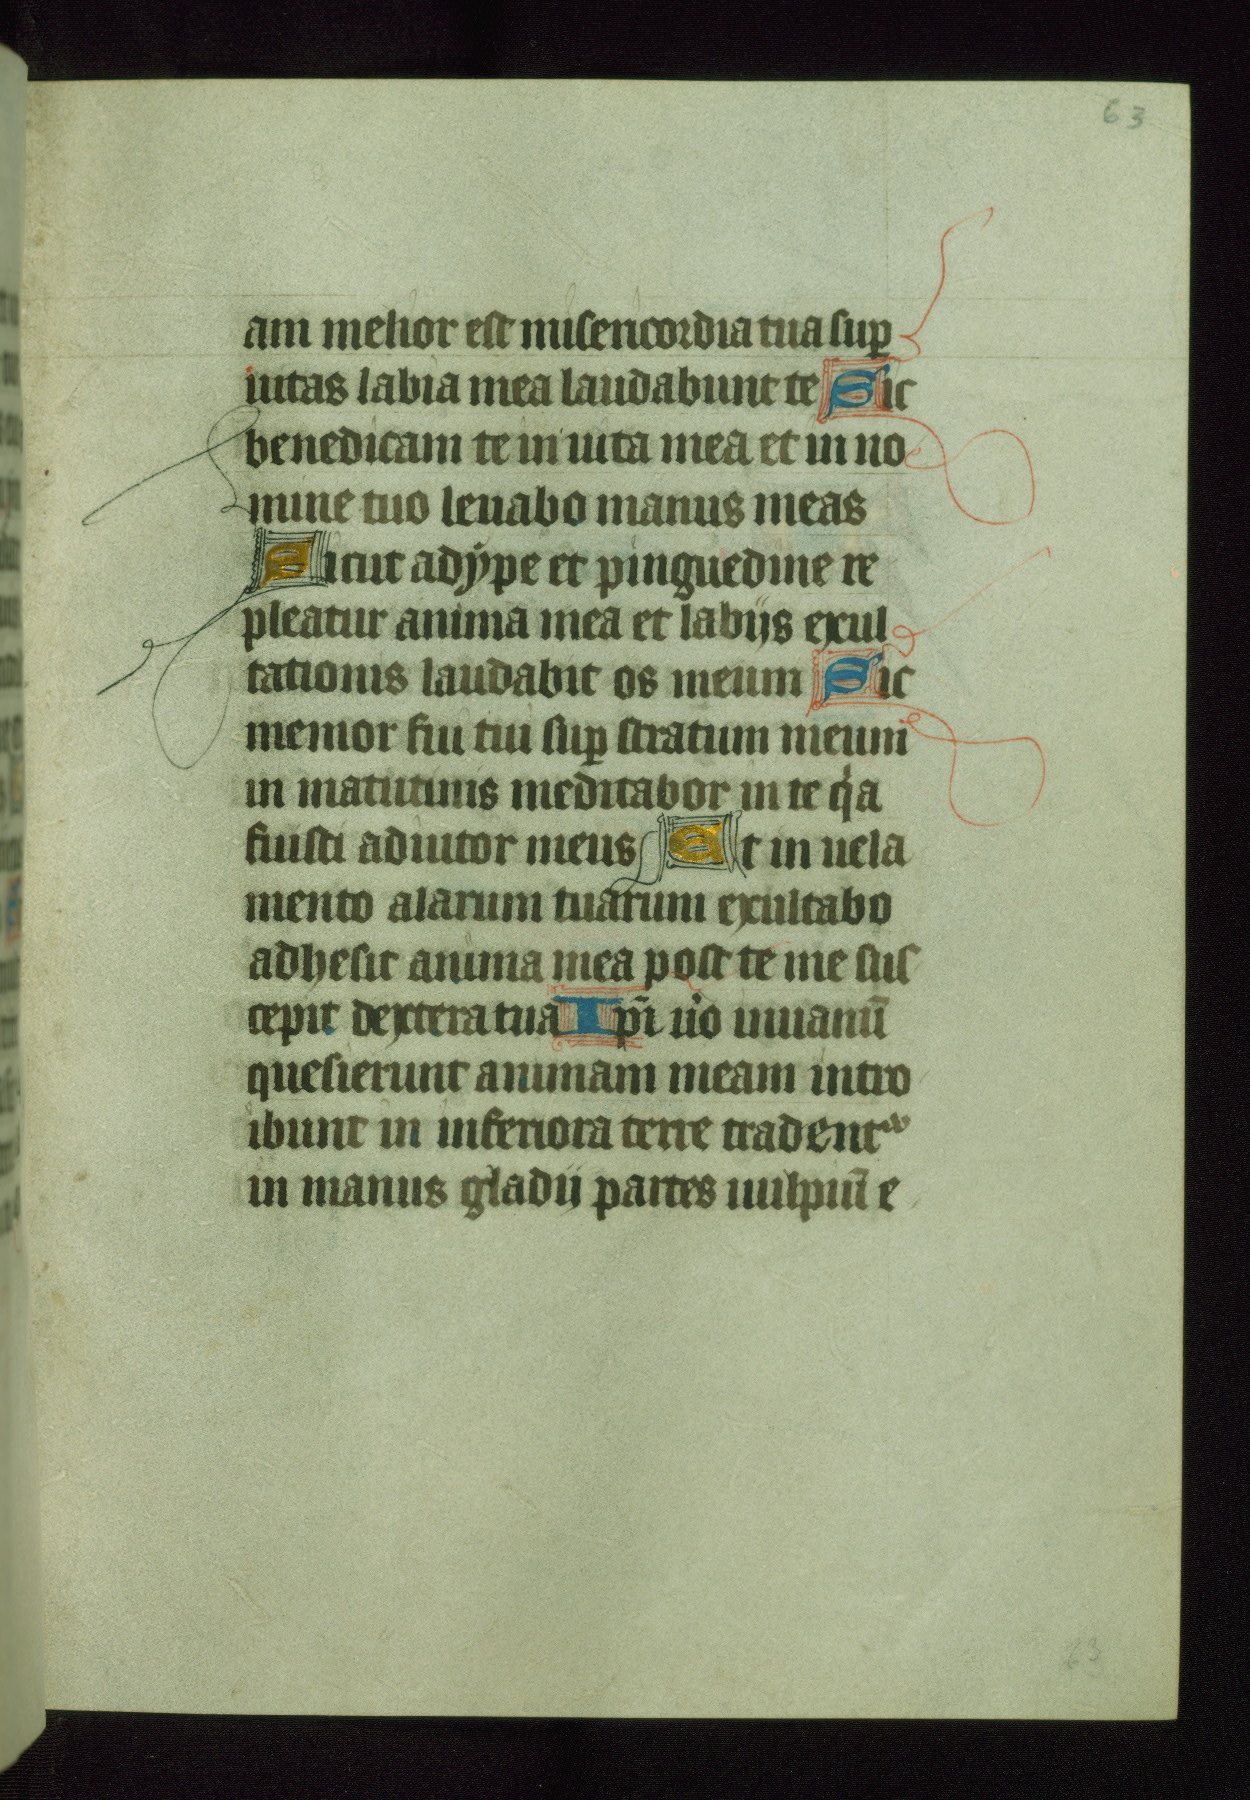 63
am melior est misericordia tua sup̱
uitas labia mea laudabunt te Sic
benedicam te in uita mea et in no
mine tuo leuabo manus meas
Sicut adÿpe et pinguedine re
pleatur anima mea et labijs exul
tationis laudabit os meum Sic
memor fui tui sup̱ stratum meum
in matutinis meditabor in te qͥa
fuisti adiutor meus Et in uela
mento alarum tuarum exultabo
adhesit anima mea post te me sus
cepit dextera tua Ip̄i uͦo inuanū
quesierunt animam meam intro
ibunt in inferiora terre tradentᵘʳ
in manus gladij partes uulpiū e
63